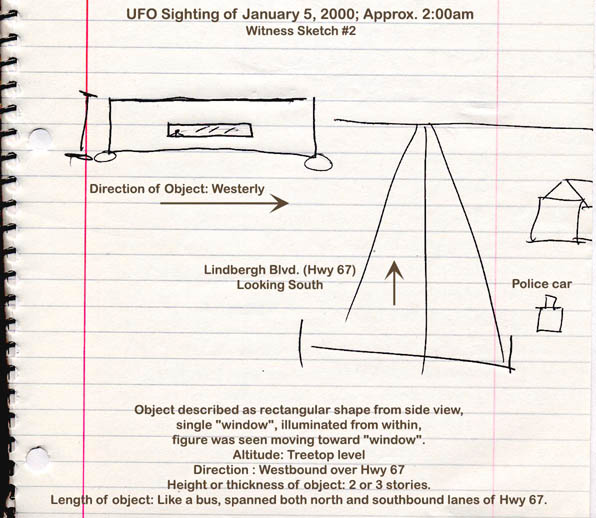 UFO Sighting of January 5, 2000; Approx. 2:00am
Witness Sketch #2
Direction of Object: Westerly
Lindbergh Blvd. (Hwy 67)
Looking South
Police car
Object described as rectangular shape from side view,
single "window", illuminated from within,
figure was seen moving toward "window".
Altitude: Treetop level
Direction : Westbound over Hwy 67
Height or thickness of object: 2 or 3 stories.
Length of object: Like a bus, spanned both north and southbound lanes of Hwy 67.